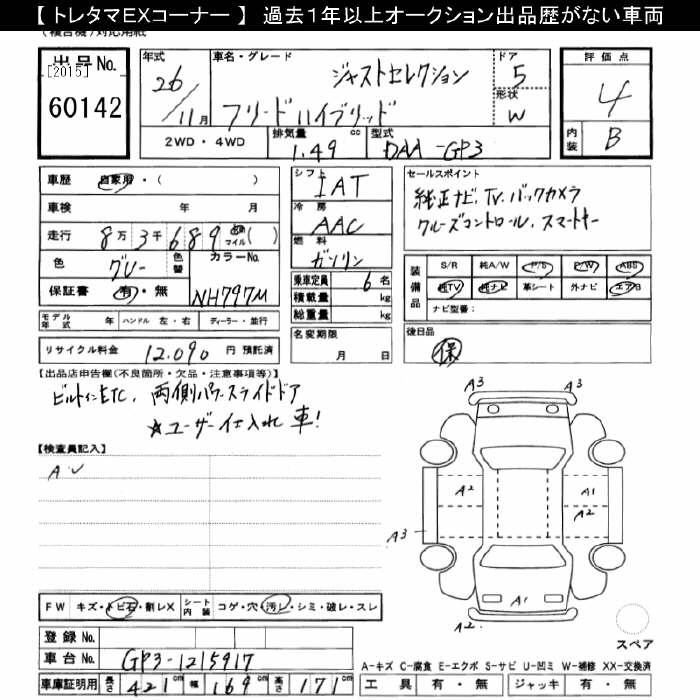 【 トレタマEXコーナー 】 過去1年以上オークション出品歴がない車両
(複合機)対応用紙
出品No.
[2015]
60142
年式
26/11月
車名・グレード
ジャストセレクション
フリードハイブリッド
ドア
5
形状
W
評価点
4
内装
B
2WD・4WD
排気量
1.49
cc
型式
DAA-GP3
車歴
自家用・( )
車検 年 月
走行
8万3千689
km
マイル
( )
色
グレー
色替
カラーNo.
NH797M
保証書
有・無
シフト
IAT
冷房
AAC
燃料
ガソリン
乗車定員
6名
積載量 kg
総重量 kg
名変期限
月 日
セールスポイント
純正ナビ、TV、バックカメラ
クルーズコントロール、スマートキー
装備品
S/R 純A/W P/S P/W ABS
純TV 純ナビ 革シート 外ナビ エアB
ナビ型番:
後日品
保
モデル年式 年
ハンドル 左・右
ディーラー・並行
リサイクル料金
12,090
円 預託済
【出品店申告欄(不良箇所・欠品・注意事項等)】
ビルトインETC、両側パワースライドドア
☆ユーザー仕入れ車!
【検査員記入】
A・U
A3 A3
A2 A1
A2
A3
A1
A2
スペア
FW キズ・トビ石・割レX
シート内装 コゲ・穴・汚レ・シミ・破レ・スレ
登録No.
車台No.
GP3-1215917
車庫証明用
長さ 421cm 幅 169cm 高さ 171cm
A-キズ C-腐食 E-エクボ S-サビ U-凹ミ W-補修 XX-交換済
工具 有・無 ジャッキ 有・無